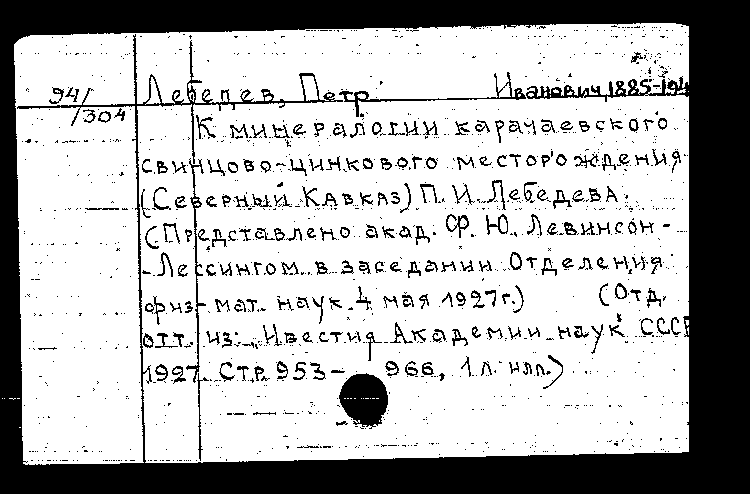 94/
/304
Лебедев, Петр Иванович, 1885-194
К минералогии карачаевского
свинцово-цинкового месторождения
(Северный Кавказ) П. И. Лебедева.
(Представлено акад. Ф. Ю. Левинсон-
-Лессингом в заседании Отделения
физ-мат. наук 4 мая 1927г.) (Отд.
отт. из: Ивестия Академии наук СССР
1927. Стр. 953- 966, 1 л. илл.)